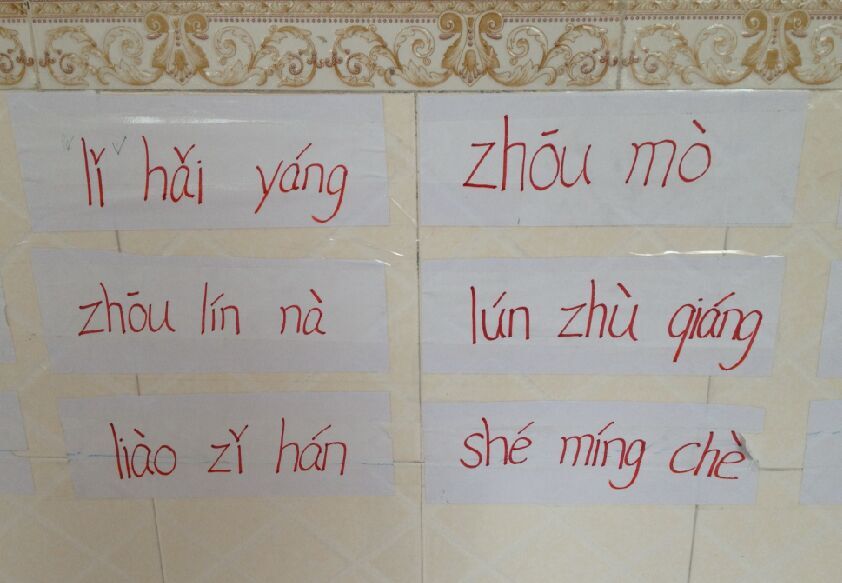 lǐ hǎi yáng
zhōu mò
zhōu lín nà
lún zhù qiáng
liào zǐ hán
shé míng chè